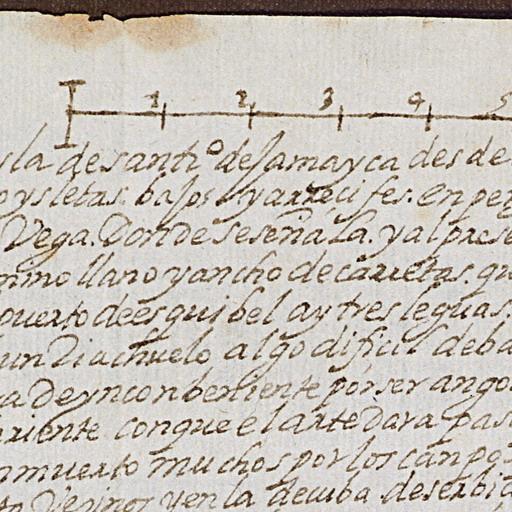 1 2 3 4 5
ysla de santi⁰ de Jamayca desde
o ysletas. bajos y arrecifes. en peq
Vega. Donde se señala. y al prese
mino llano y ancho de carretas. qu
puerto de esquibel ay tres leguas.
un Riachuelo algo dificil de ba
a de ynconbeniente por ser angos
rriente con que el arte Dara pas
n muerto muchos por los canpos
Vezinos y en la de cuba. de serbi